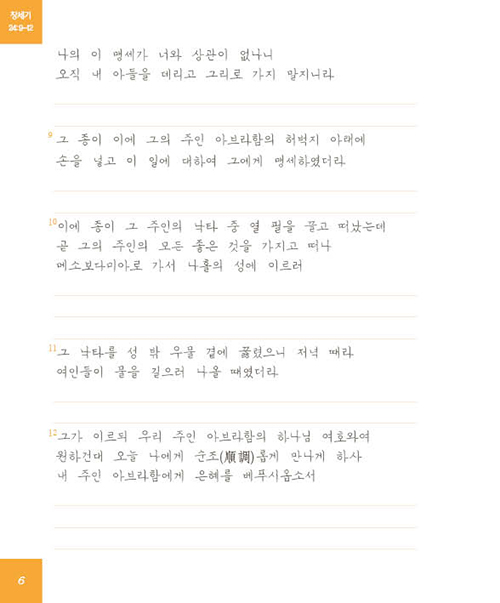 창세기
24:9-12
나의 이 맹세가 너와 상관이 없나니
오직 내 아들을 데리고 그리로 가지 말지니라
9 그 종이 이에 그의 주인 아브라함의 허벅지 아래에
손을 넣고 이 일에 대하여 그에게 맹세하였더라
10 이에 종이 그 주인의 낙타 중 열 필을 끌고 떠났는데
곧 그의 주인의 모든 좋은 것을 가지고 떠나
메소보다미아로 가서 나홀의 성에 이르러
11 그 낙타를 성 밖 우물 곁에 꿇렸으니 저녁 때라
여인들이 물을 길으러 나올 때였더라
12 그가 이르되 우리 주인 아브라함의 하나님 여호와여
원하건대 오늘 나에게 순조(順調)롭게 만나게 하사
내 주인 아브라함에게 은혜를 베푸시옵소서
6